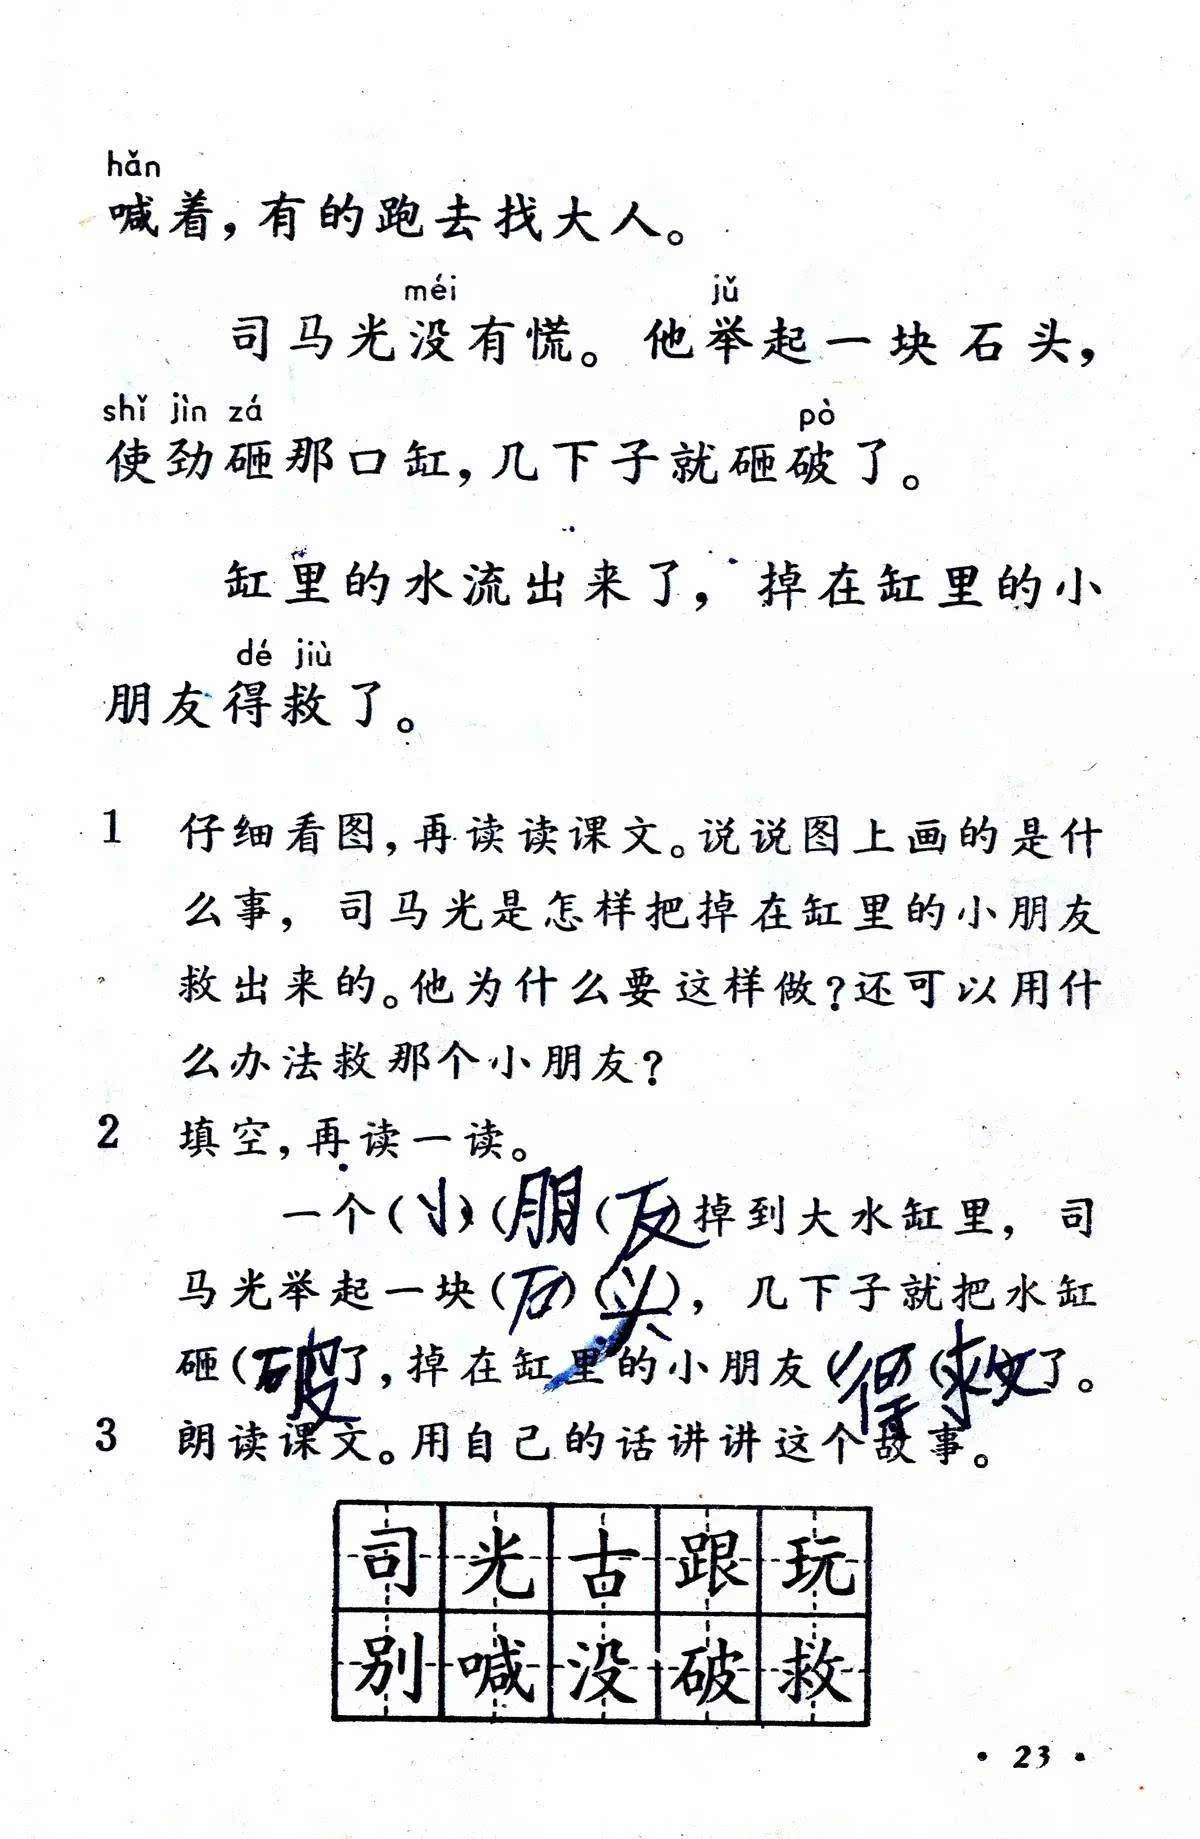 hǎn
喊着，有的跑去找大人。
méi jǔ
司马光没有慌。他举起一块石头，
shǐ jìn zá pò
使劲砸那口缸，几下子就砸破了。
缸里的水流出来了，掉在缸里的小
dé jiù
朋友得救了。
1 仔细看图，再读读课文。说说图上画的是什
么事，司马光是怎样把掉在缸里的小朋友
救出来的。他为什么要这样做？还可以用什
么办法救那个小朋友？
2 填空，再读一读。
一个（小）（朋（友）掉到大水缸里，司
马光举起一块（石）（头），几下子就把水缸
砸（破了，掉在缸里的小朋友（得）（救了。
3 朗读课文。用自己的话讲讲这个故事。
司光古跟玩
别喊没破救
· 23 ·